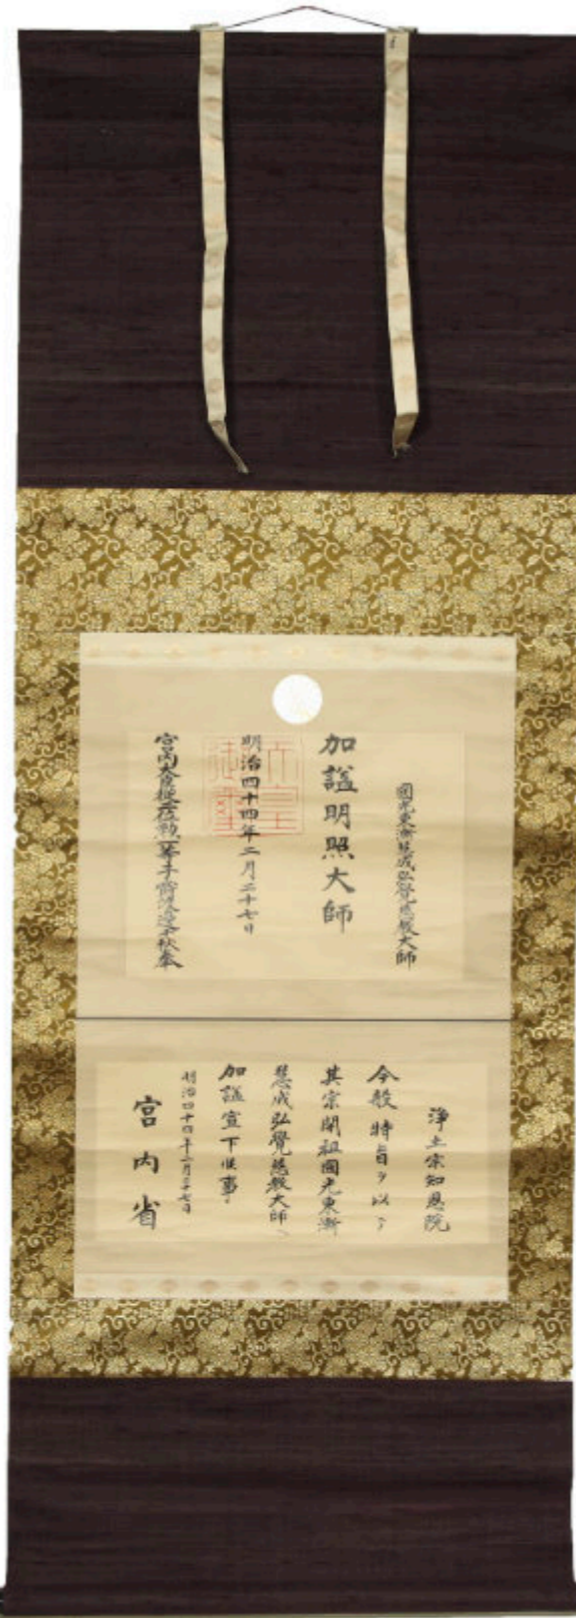 圓光東漸慧成弘覺慈教大師
加諡明照大師
明治四十四年二月二十七日
天皇御璽
宮内大臣從二位勲一等子爵渡邊千秋奉
浄土宗知恩院
今般特旨ヲ以テ
其宗開祖圓光東漸
慧成弘覺慈教大師ヘ
加諡宣下候事
明治四十四年二月二十七日
宮内省